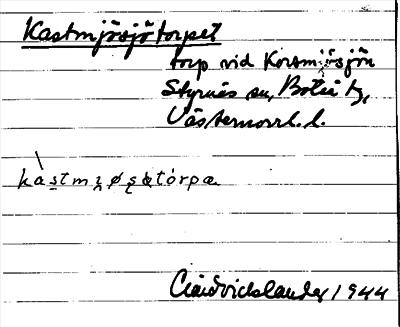 Kastmjösjötorpet
torp vid Korsmjösjön
Styrnäs sn, Boteå tg,
Västernorrl. l.
1944